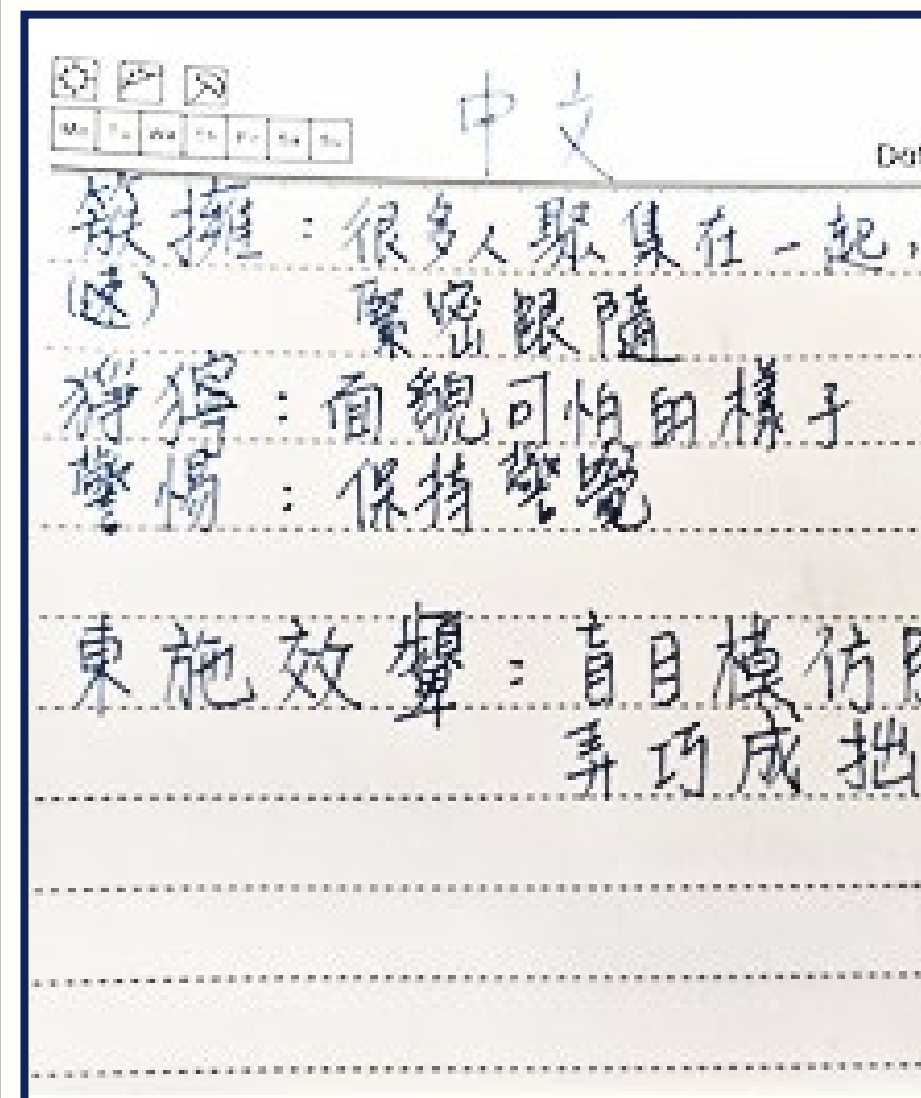 中文
Mo Tu We Th Fr Sa Su
Dat
簇擁：很多人聚集在一起，
(速) 緊密跟隨
猙獰：面貌可怕的樣子
警惕：保持警覺
東施效顰：盲目模仿
弄巧成拙